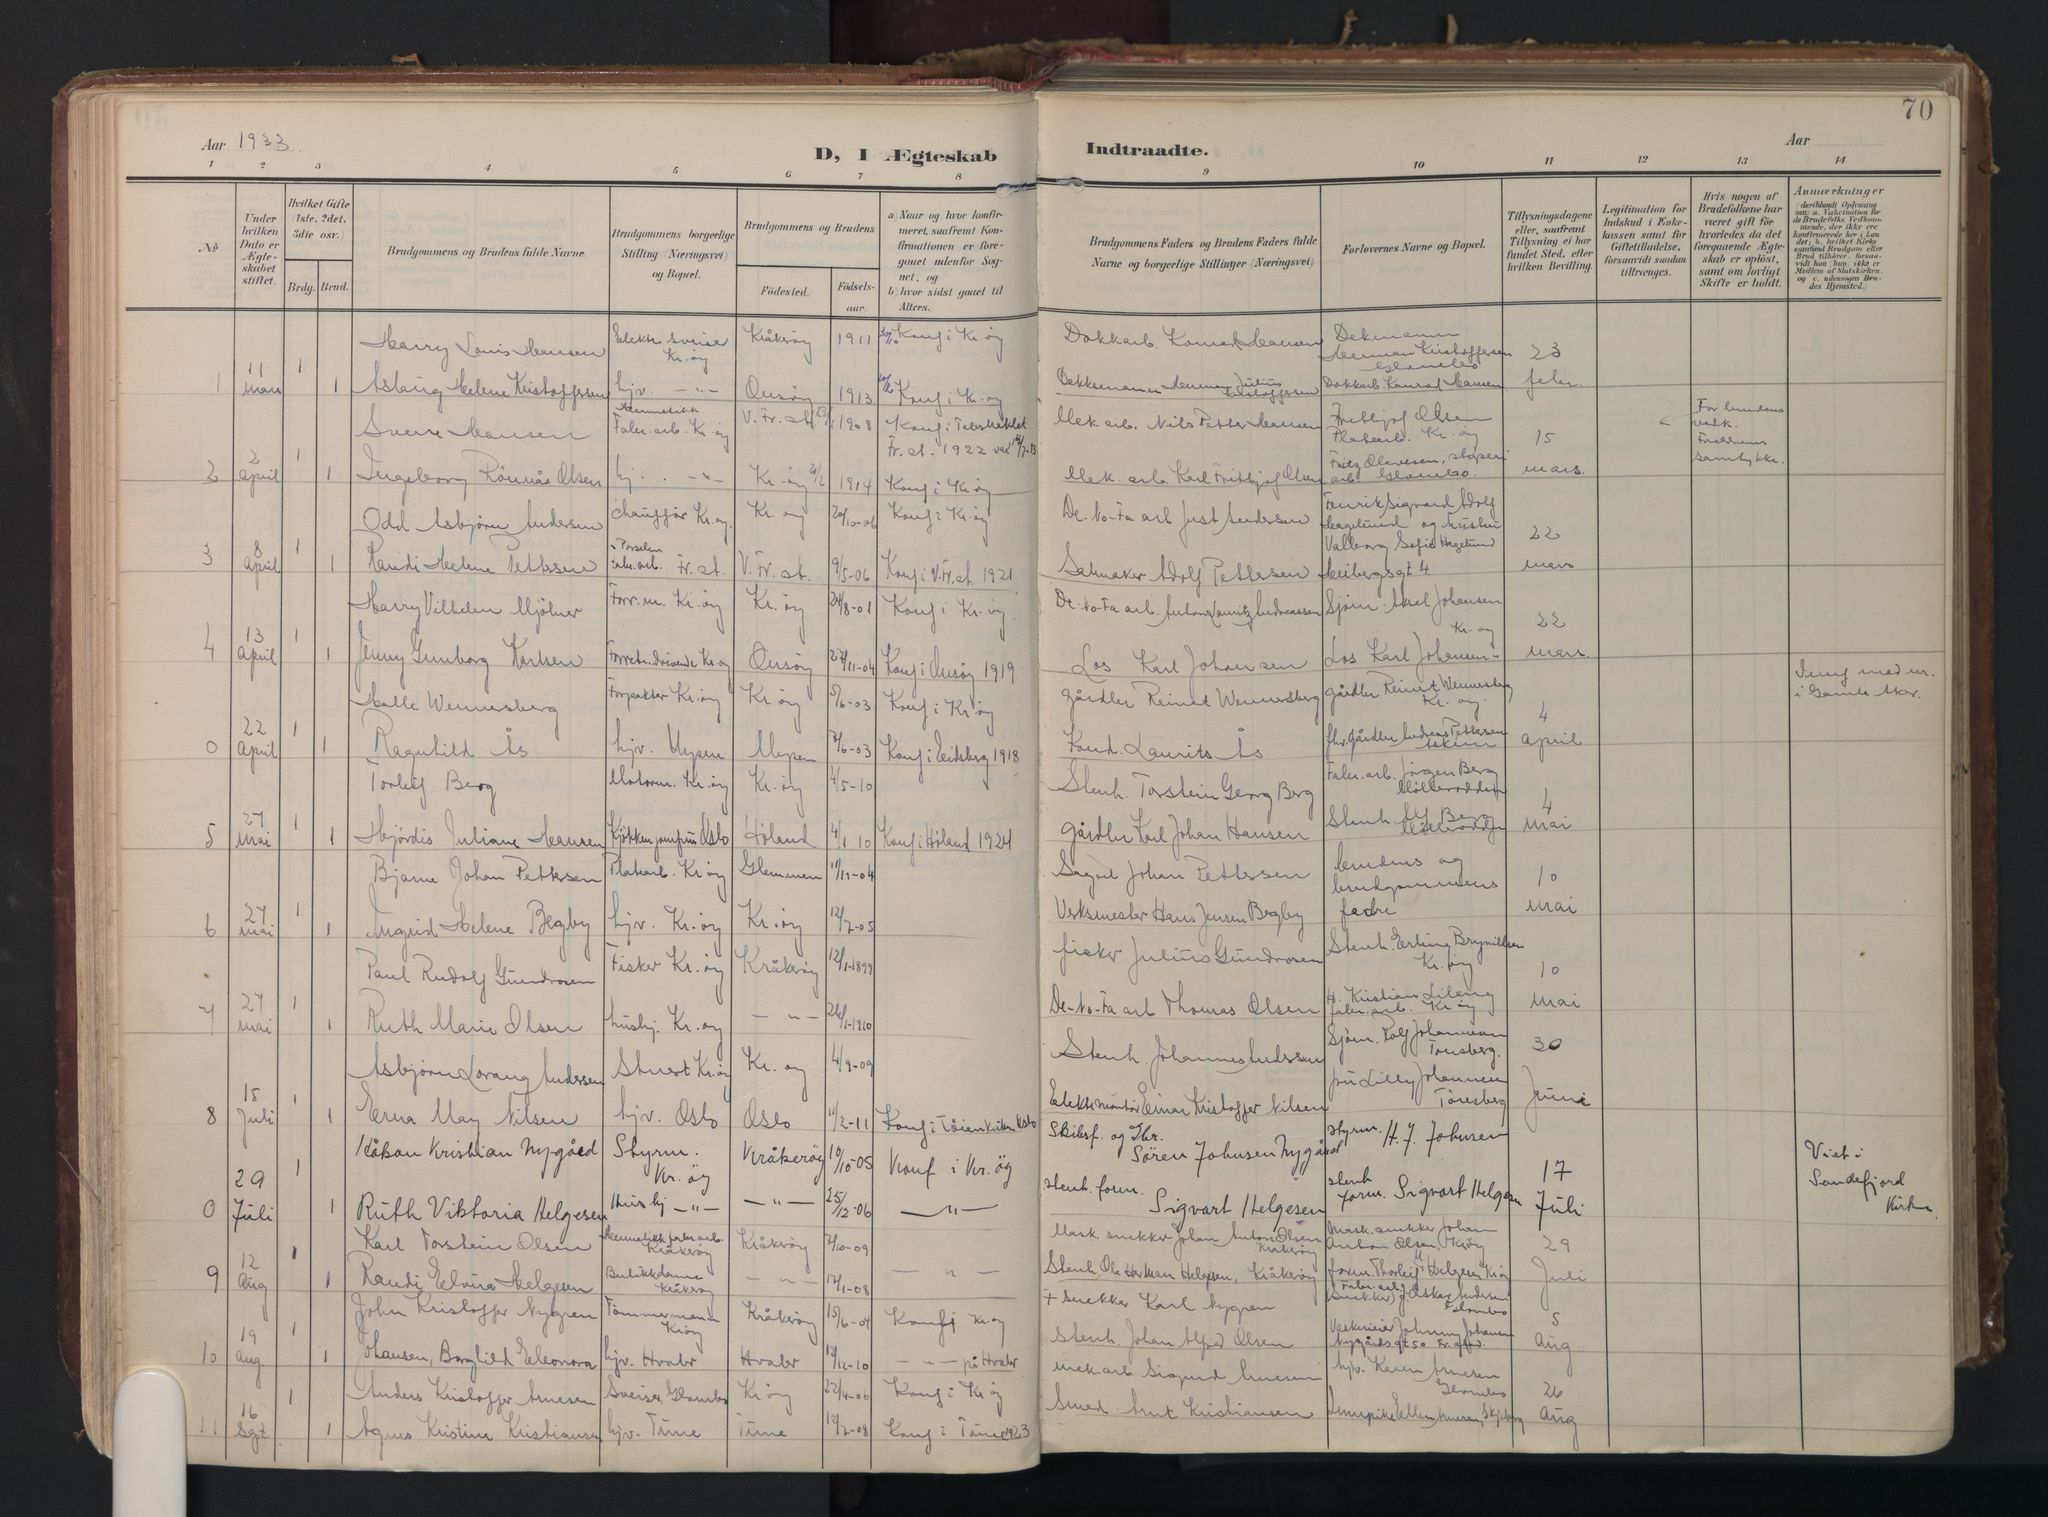 70
Aar 1933.
D, I Ægteskab Indtraadte.
Aar
1 2 3 4 5 6 7 8 9 10 11 12 13 14
No
Under hvilken Dato er Ægteskabet stiftet.
Hvilket Gifte (1ste, 2det, 3die osv.)
Brdg. Brud.
Brudgommens og Brudens fulde Navne
Brudgommens borgerlige Stilling (Næringsvei) og Bopæl.
Brudgommens og Brudens
Födested. Födselsaar.
a) Naar og hvor konfirmeret, saafremt Konfirmationen er foregaaet udenfor Sognet, og
b) hvor sidst gaaet til Alters.
Brudgommens Faders og Brudens Faders fulde Navne og borgerlige Stillinger (Næringsvei)
Forlovernes Navne og Bopæl.
Tillysningsdagene eller, saafremt Tillysning ei har fundet Sted, efter hvilken Bevilling.
Legitimation for Indskud i Enkekassen samt for Giftetilladelse, forsaavidt saadan tiltrænges.
Hvis nogen af Brudefolkene har været gift før hvorledes da det foregaaende Ægteskab er oplöst, samt om lovligt Skifte er holdt.
Anmærkninger
(deriblandt Oplysning om: a. Vakcination for de Brudefolks Vedkommende, der ikke ere konfirmerede her i Landet; b. hvilket Kirkesamfund Brudgom eller Brud tilhörer, forsaavidt han (hun) ikke er Medlem af Statskirken, og c. udensogns Brudes Hjemsted.)
Harry Louis Hansen Elektr. Kr.øy Kråkerøy 1911 Konf i Kr.øy Dokkarb. Konrad Hansen Herman Kristoffersen 23
1 11 mars 1 1 Aslaug Helene Kristoffersen hjv. -"- Onsøy 1913 Konf i Kr.øy Herman Julius Kristoffersen Dokkarb. Konrad Hansen febr.
Sverre Hansen Hermetikk Fabr. arb. Kr.øy V. Fr.st. 1908 Konf i Fr.st. 1922 Mek arb. Nils Petter Hansen Fritbjof Olsen Platearb. Kr.øy 15 For brudens samtykke.
2 2 april 1 1 Ingeborg Rønnås Olsen hj. -"- Kr.øy 1914 Konf i Kr.øy Mek. arb. Karl Fritbjof Olsen Fritz Glombo. mars.
Odd Asbjørn Andersen chauffør Kr.øy. Kr.øy 20/10-06 Konf i Kr.øy De-No-Fa arb. Just Andersen Sigvard Adolf Hagelund og Valborg Sofie Hagelund 22
3 8 april 1 1 Randi Helene Pettersen Porselen fabr. arb. Fr.st. V. Fr.st. 9/5-06 Konf i V. Fr.st. 1921 Adolf Pettersen Heibergsgt 4. mars
Harry Vilhelm Mjølner Forr.m. Kr.øy Kr.øy 24/8-01 Konf i Kr.øy. De-No-Fa arb. Anton Lauritz Andreassen Sjøm. Axel Johansen Kr.øy 22
4 13 april 1 1 Jenny Gunborg Karlsen Forretn. drivende Kr.øy Onsøy 27/11-04 Konf i Onsøy 1919 Los Karl Johansen Los Karl Johansen mars.
Halle Wennersberg Forpakter Kr.øy Kr.øy 5/6-03 Konf i Kr.øy Gårdbr Reinert Wennersberg Gårdbr Reinert Wennersberg Kr.øy. 4
0 22 April 1 1 Ragnhild Ås hjv. Mysen Mysen 7/6-03 Konf i Eidsberg 1918 Laurits Ås gårdbr Andreas Pettersen Askim april
Torleif Berg Motorm. Kr.øy Kr.øy 4/5-10 Stenh. Torstein Georg Berg Fabr. arb. Jörgen Berg 4
5 27 Mai 1 1 Hjördis Juliane Hansen Oslo Høland 4/1 10 Konf i Høland 1924 gårdbr Karl Johan Hansen Stenh. Berg Mai
Bjarne Johan Pettersen Platearb. Kr.øy Glemmen 11/11-04 Johan Pettersen brudens og brudgommens 10
6 27 mai 1 1 Ingrid Helene Begby hjv. Kr.øy Kr.øy 12/7-05 Verksmester Hans Jensen Begby fedre mai
Paul Rudolf Gundrosen Fisker Kr.øy Kråkerøy 12/1-1899 fisker Julius Gundrosen Stenh. Erling Brynildsen Kr.øy 10
7 27 mai 1 1 Ruth Marie Olsen hushj. Kr.øy -"- 26/1-1910 De-No-Fa arb Thomas Olsen Kristian Lileng fabr. arb. Kr.øy mai
Asbjørn Lorang Andersen Stuert Kr.øy Kr.øy 4/9-09 Stenh. Johannes Andersen Sjøm. Rolf Johannesen Tønsberg. 30
8 15 Juli 1 1 Erna May Nilsen hjv. Oslo Oslo 11/2-11 Konf i Tøienkirken Oslo Elektr. montør Einar Kristoffer Nilsen fru Lilly Johannesen Tønsberg Juni
Håkon Kristian Nygård Styrm. Kr.øy Kråkerøy 10/10-05 Konf i Kr.øy Skibsf. og Gbr. Sören Johnsen Nygård Styrm. H. J. Johnsen 17 Viet i Sandefjord Kirke.
0 29 Juli 1 1 Ruth Viktoria Helgesen Hushj -"- -"- 25/12-06 -"- stenh. form. Sigvart Helgesen stenh form. Sigvart Helgesen Juli
Karl Torstein Olsen Hermetikk fabr. arb. Kråkerøy Kråkerøy 7/10-09 Mask. snekker Johan Anton Olsen Kråkerøy Mask. snekker Johan Anton Olsen, Krøy 29
9 12 Aug 1 1 Randi Elvira Helgesen Butikkdame Kråkerøy -"- 17/1-08 -"- Stenh. Ole Herman Helgesen, Kråkerøy form. Thorleif Helgesen Krøy Juli
John Kristoffer Nygren Tømmermann Krøy Kråkerøy 15/6-04 Konf i Kr.øy + snekker Karl Nygren Fabr. arb. (snekker) J. Oskar Andersen Glombo 5
10 19 aug 1 1 Johansen, Borghild Eleonora hjv. Hvaler Hvaler 17/12-10 -"- på Hvaler Stenh. Johan Alfred Olsen Johnny Johansen Nygårdsgt 50 Fr.stad. Aug
Anders Kristoffer Arnesen Sveiser, Glombo Kr.øy 22/4-06 Konf i Kr.øy mek arb Sigurd Arnesen hjv. Karen Arnesen Glombo 26
11 16 Sept. 1 1 Agnes Kristine Kristiansen hjv. Tune Tune 12/2-08 Konf i Tune 1923 Smed Arnt Kristiansen Ellen Arnesen, Skjeberg Aug